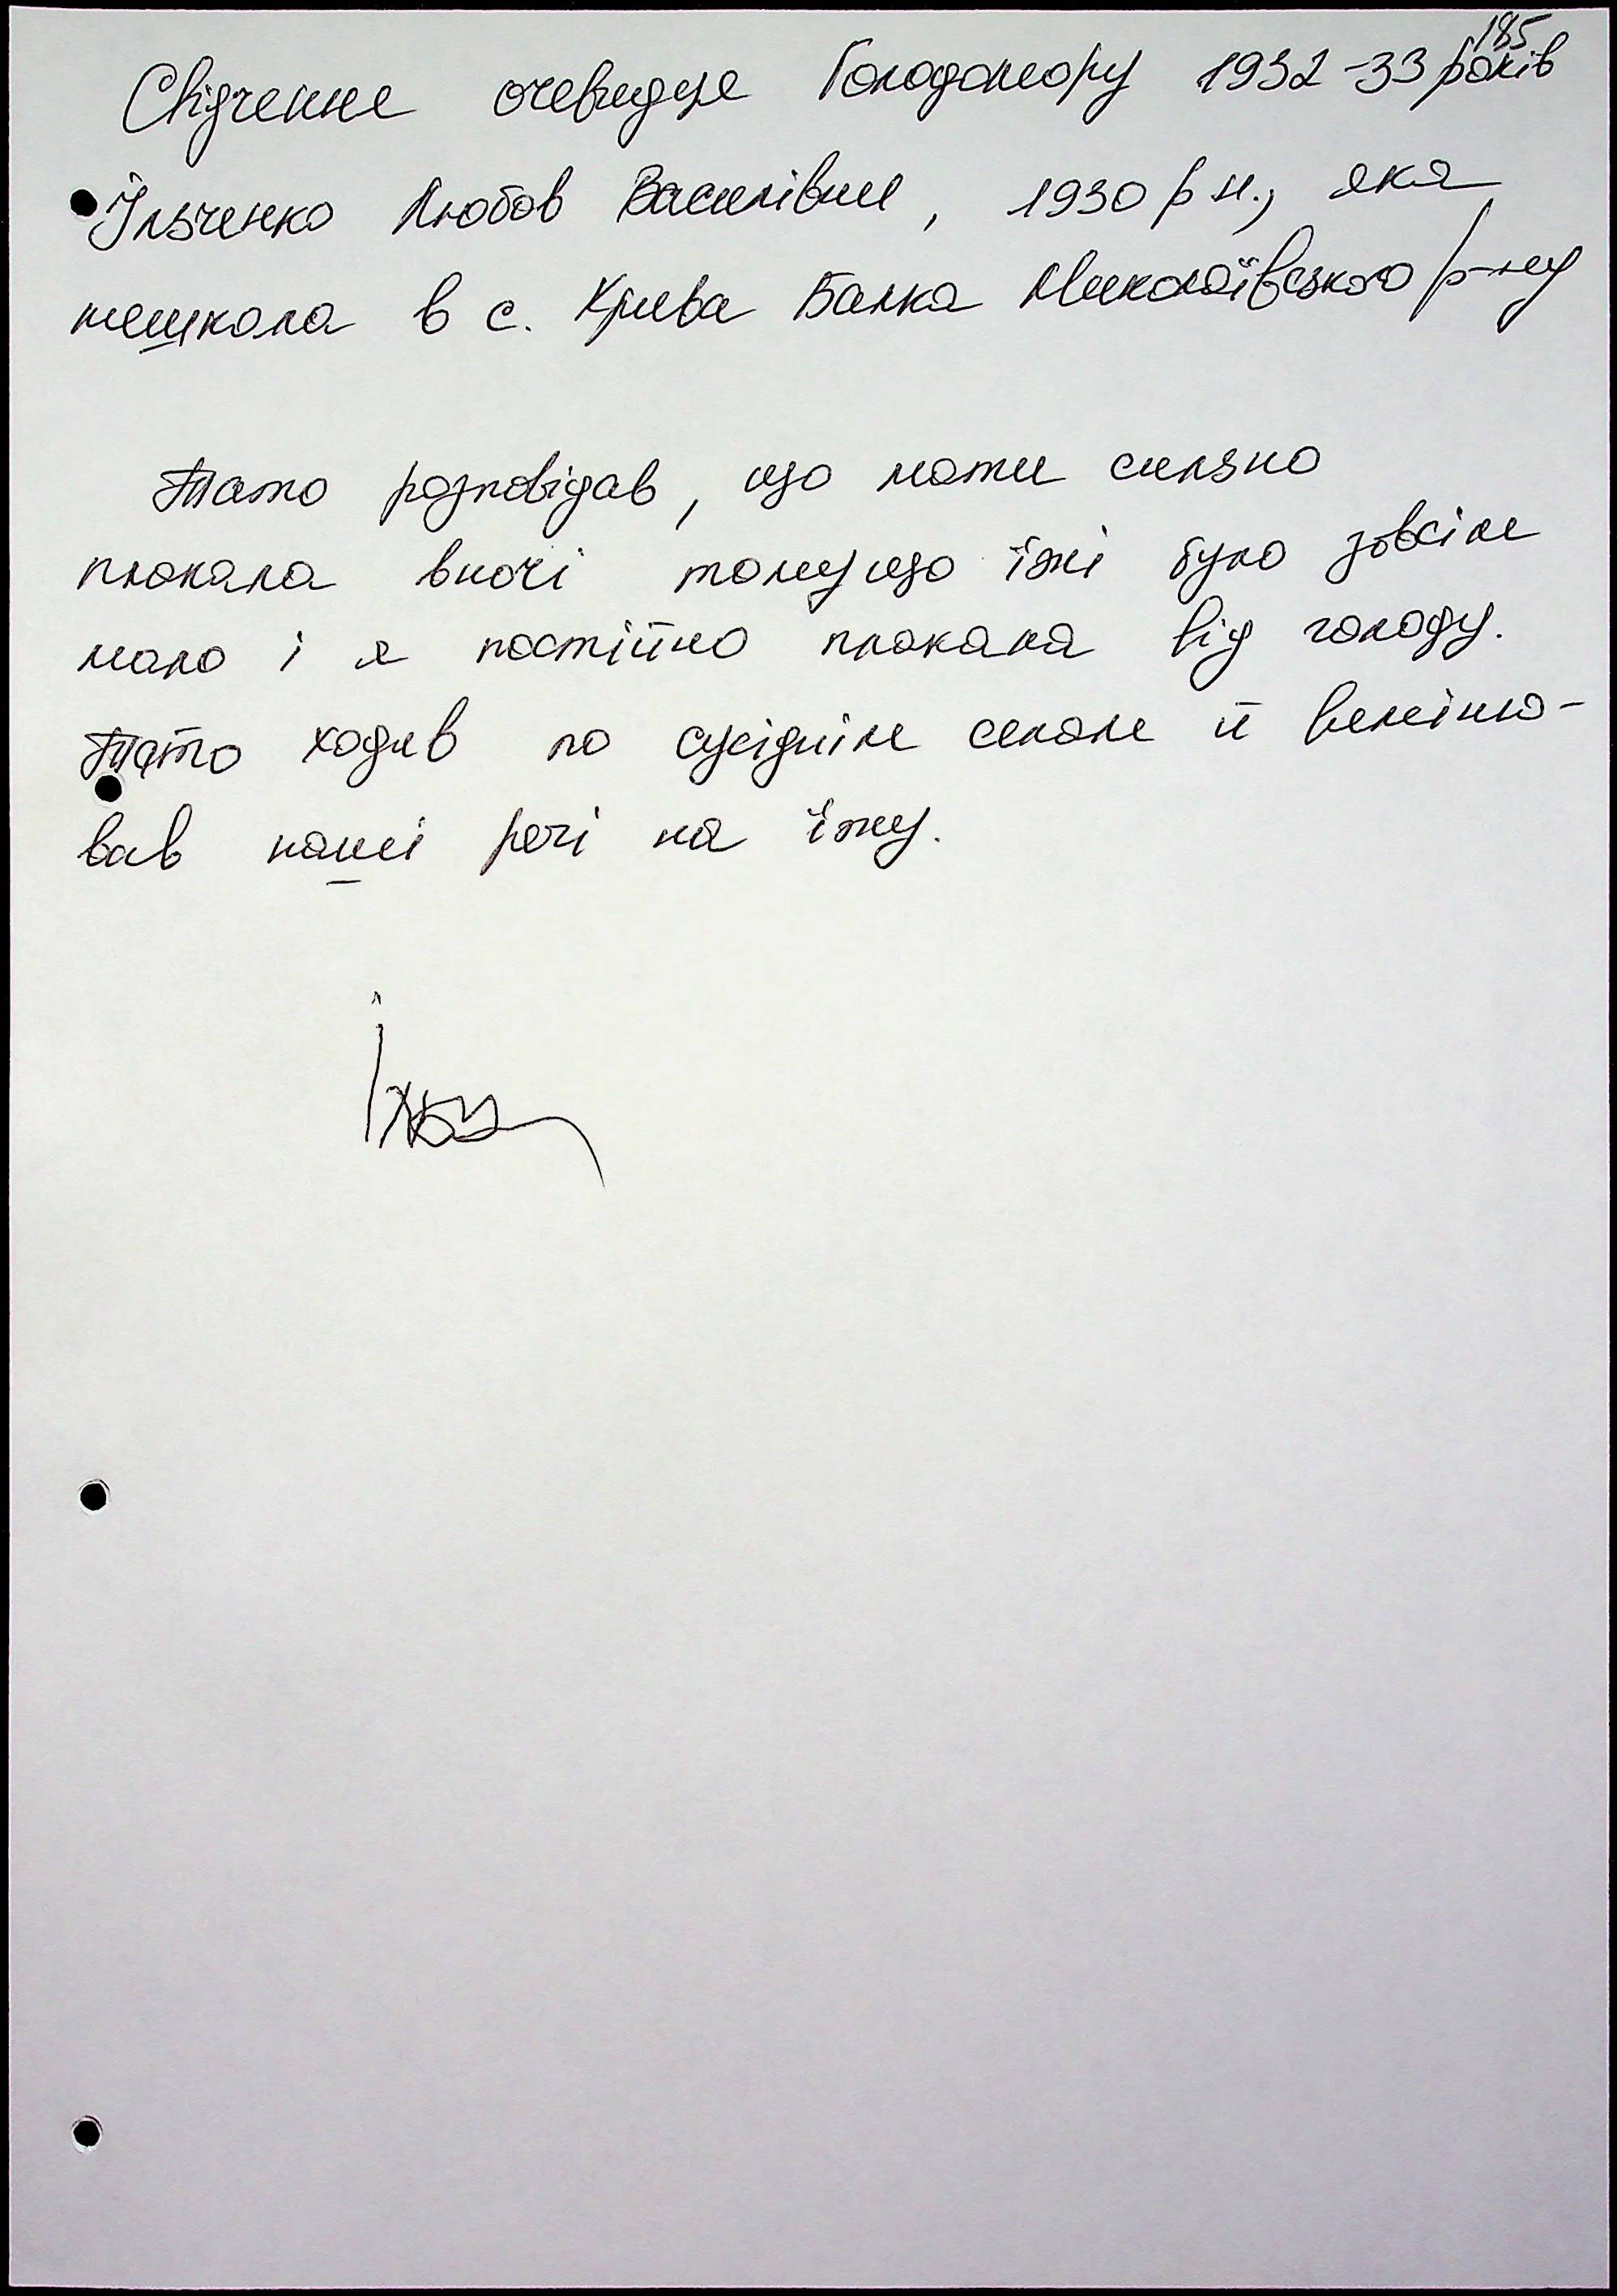 185
Свідчення очевидця Голодомору 1932-33 років
Ільченко Любов Василівни, 1930 р н., яка
мешкала в с. Крива Балка Миколаївського р-ну
Тато розповідав, що мати сильно
плакала вночі тому що їжі було зовсім
мало і я постійно плакала від голоду.
Тато ходив по сусіднім селам й виміню-
вав наші речі на їжу.